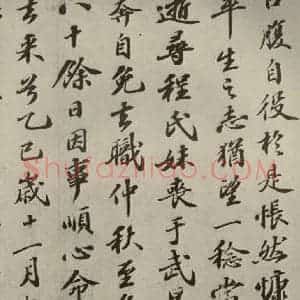 口腹自役於是悵然慷
平生之志猶望一稔當
逝尋程氏妹喪于武昌
奔自免去職仲秋至冬
八十餘日因事順心命
去来兮乙巳歲十一月
Shufaziliao.COM